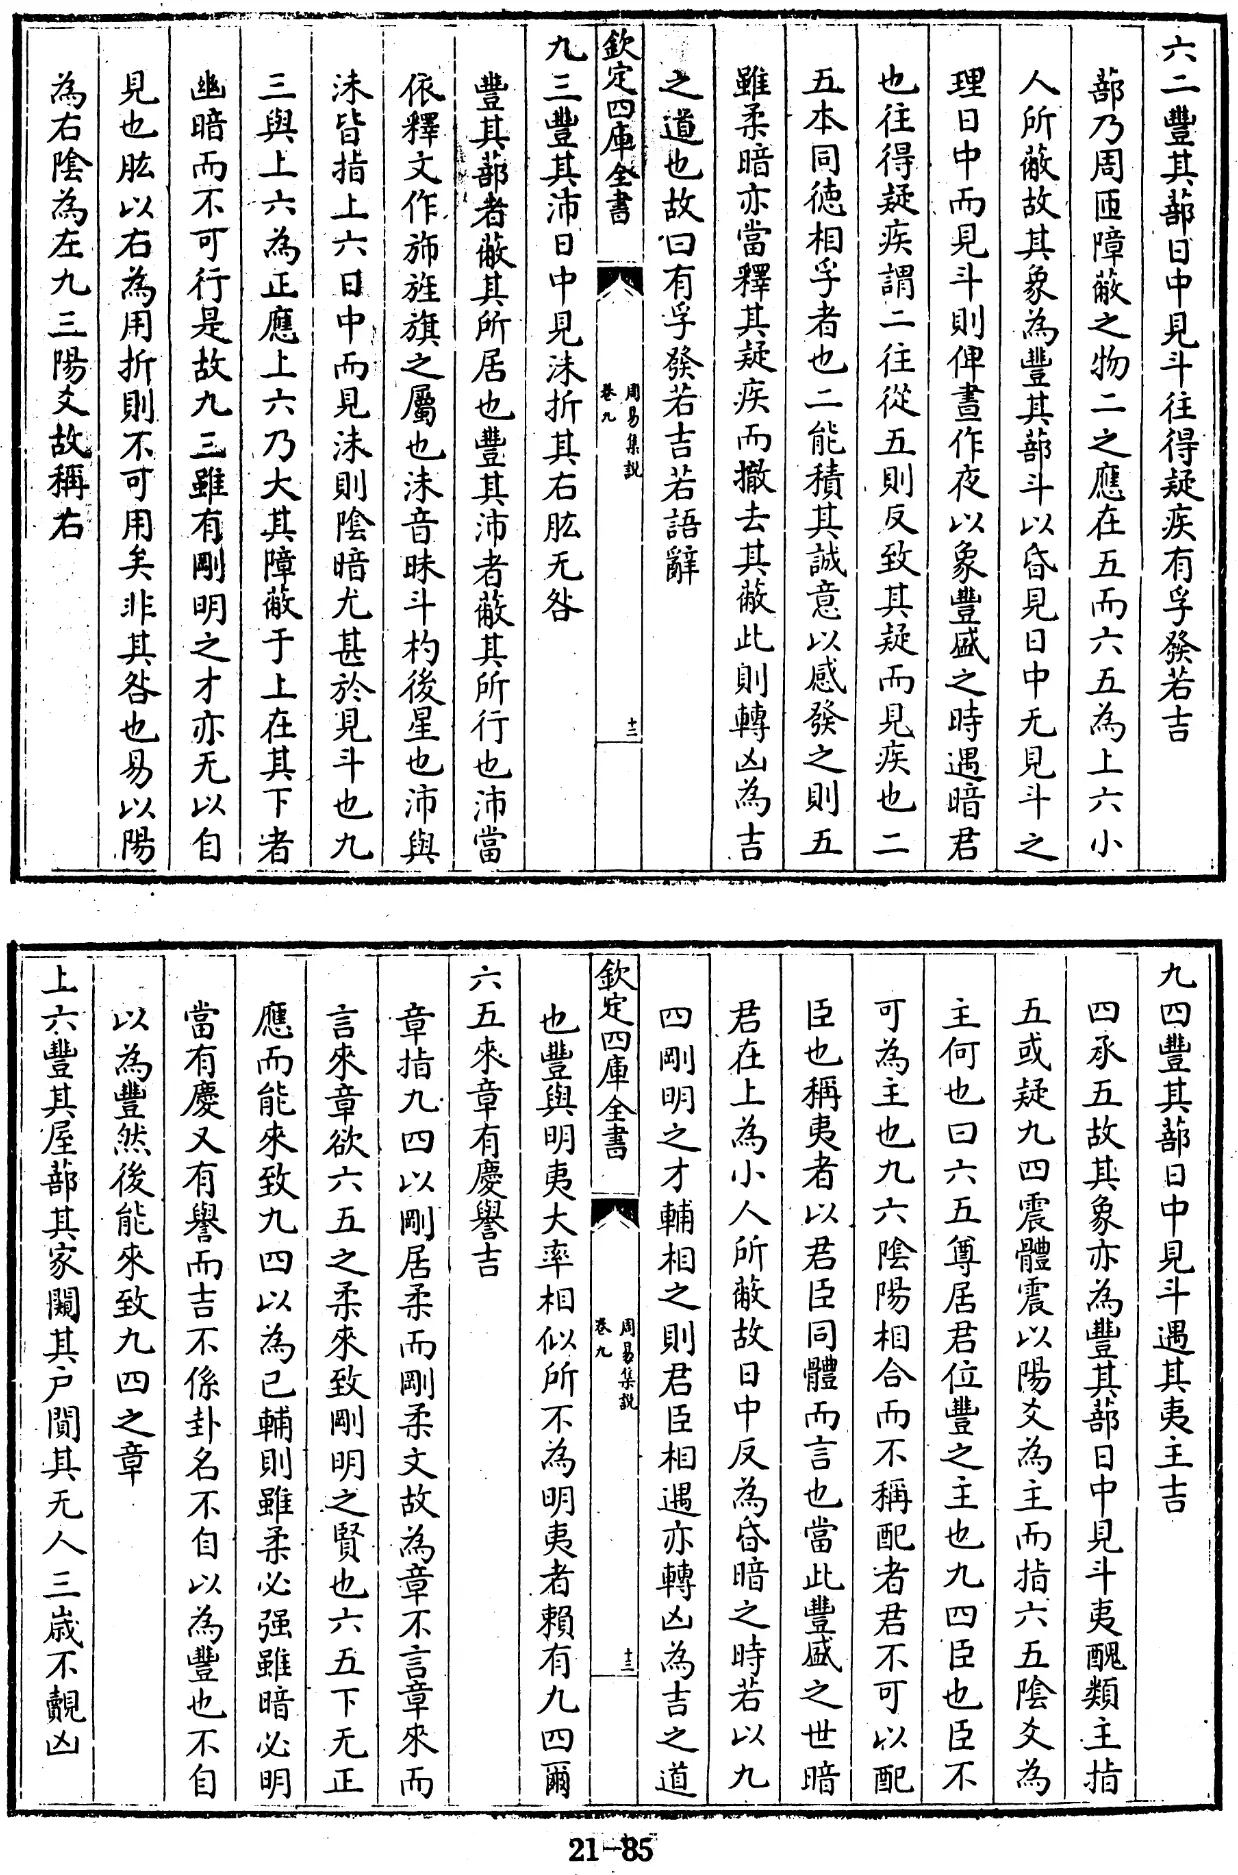 六二豐其蔀日中見斗往得疑疾有孚發若吉
蔀乃周匝障蔽之物二之應在五而六五為上六小
人所蔽故其象為豐其蔀斗以昏見日中无見斗之
理日中而見斗則俾晝作夜以象豐盛之時遇暗君
也往得疑疾謂二往從五則反致其疑而見疾也二
五本同德相孚者也二能積其誠意以感發之則五
雖柔暗亦當釋其疑疾而撤去其蔽此則轉凶為吉
之道也故曰有孚發若吉若語辭
欽定四庫全書
周易集說
卷九
十三
九三豐其沛日中見沬折其右肱无咎
豐其蔀者蔽其所居也豐其沛者蔽其所行也沛當
依釋文作斾旌旗之屬也沬音昧斗杓後星也沛與
沬皆指上六日中而見沬則陰暗尤甚於見斗也九
三與上六為正應上六乃大其障蔽于上在其下者
幽暗而不可行是故九三雖有剛明之才亦无以自
見也肱以右為用折則不可用矣非其咎也易以陽
為右陰為左九三陽爻故稱右
九四豐其蔀日中見斗遇其夷主吉
四承五故其象亦為豐其蔀日中見斗夷醜類主指
五或疑九四震體震以陽爻為主而指六五陰爻為
主何也曰六五尊居君位豐之主也九四臣也臣不
可為主也九六陰陽相合而不稱配者君不可以配
臣也稱夷者以君臣同體而言也當此豐盛之世暗
君在上為小人所蔽故日中反為昏暗之時若以九
四剛明之才輔相之則君臣相遇亦轉凶為吉之道
欽定四庫全書
周易集說
卷九
十三
也豐與明夷大率相似所不為明夷者賴有九四爾
六五來章有慶譽吉
章指九四以剛居柔而剛柔文故為章不言章來而
言來章欲六五之柔來致剛明之賢也六五下无正
應而能來致九四以為已輔則雖柔必强雖暗必明
當有慶又有譽而吉不係卦名不自以為豐也不自
以為豐然後能來致九四之章
上六豐其屋蔀其家闚其户闃其无人三歲不覿凶
21-85